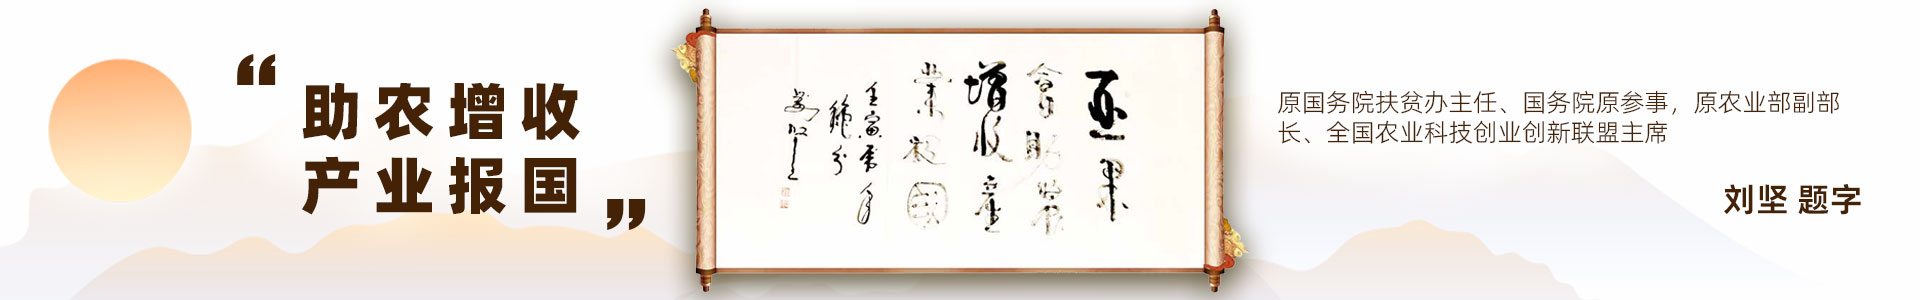 “助农增收
产业报国”
增收产
业报国
壬寅年
刘坚
原国务院扶贫办主任、国务院原参事，原农业部副部
长、全国农业科技创业创新联盟主席
刘坚 题字